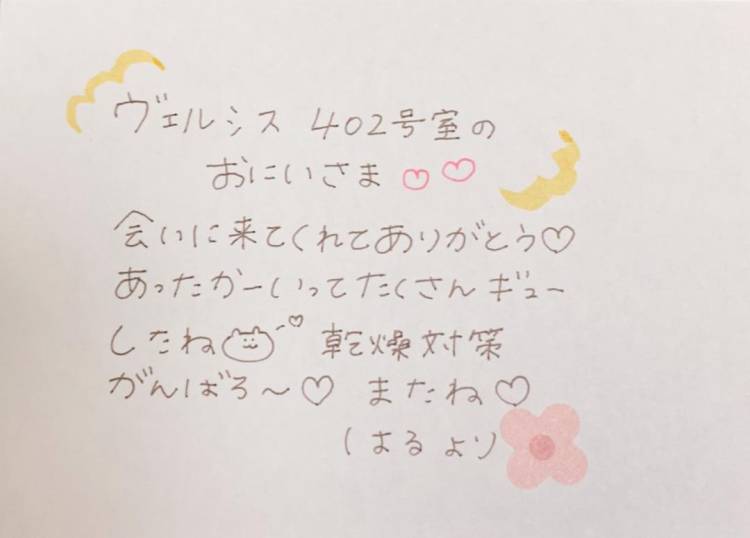 ヴェルシス 402号室の
おにいさま♡♡
会いに来てくれてありがとう♡
あったかーいってたくさんギュー
したね 乾燥対策
がんばろ〜♡ またね♡
はるより